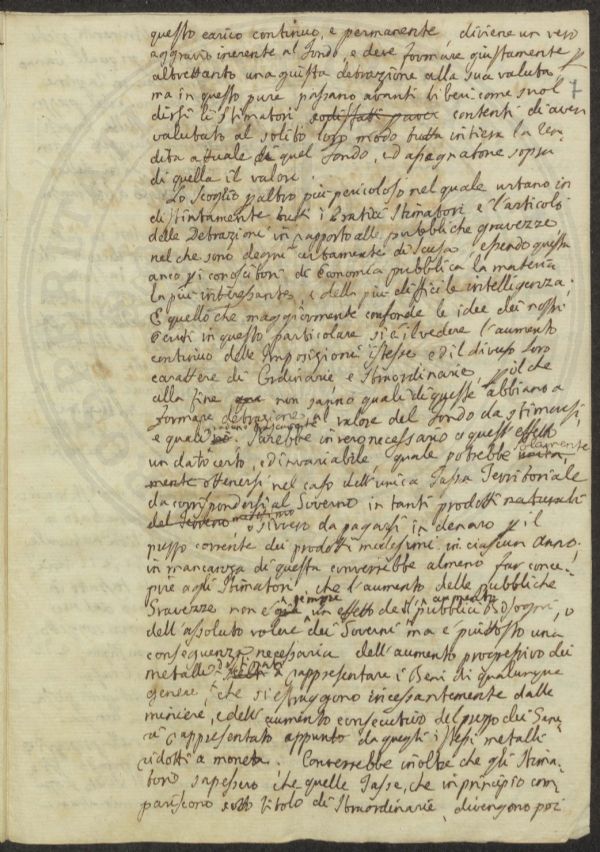 questo carico continuo, e permanente diviene un vero
aggravio inerente al fondo, e deve formare giustamente, e
altrettanto una giusta detrazione alla sua valuta 7
ma in questo pure passano avanti li beni come suol
dirsi li stimatori, contenti di aver
valutato al solito loro modo tutta intiera la ren-
dita attuale di quel fondo, ed assegnatone sopra
di quella il valore.
Lo scoglio p altro più pericoloso nel quale urtano in
distintamente tutti i Pratici Stimatori è l'articolo
delle Detrazioni in rapporto alle pubbliche gravezze
nel che sono degni certamente di scusa, essendo questa
anco p i conoscitori di Economia pubblica la materia
la più interessante, e della più difficile intelligenza;
E quello che maggiormente confonde le idee dei nostri
Periti in questo particolare si è il vedere l'aumento
continuo delle Imposizioni istesse ed il diverso loro
carattere di Ordinarie, e Straordinarie, p il che
alla fine non sanno quali di queste abbiano a
formare detrazione al valore del fondo da stimarsi,
e quali no. Sarebbe in vero necessario a quest'effetto
un dato certo, ed invariabile, quale potrebbe solamente
mente ottenersi nel caso dell'unica Tassa Territoriale
da corrispondersi al Governo in tanti prodotti naturali
del Terreno medesimo, o sivvero da pagarsi in denaro p il
prezzo corrente dei prodotti medesimi in ciascun anno;
in mancanza di questa converrebbe almeno far conce-
pire agli Stimatori, che l'aumento delle pubbliche
Gravezze non è sempre un effetto de pubblici bisogni, o
dell'assoluto volere dei Governi ma è piuttosto una
conseguenza necessaria dell'aumento progressivo dei
metalli destinati a rappresentare i Beni di qualunque
genere, che si estraggono incessantemente dalle
miniere, e dell'aumento consecutivo del prezzo dei Gene
ri rappresentato appunto da quegli istessi metalli
ridotti a moneta. Converrebbe inoltre che gli Stima-
tori sapessero che quelle Tasse, che in principio com
pariscono sotto titolo di Straordinarie, divengono poi